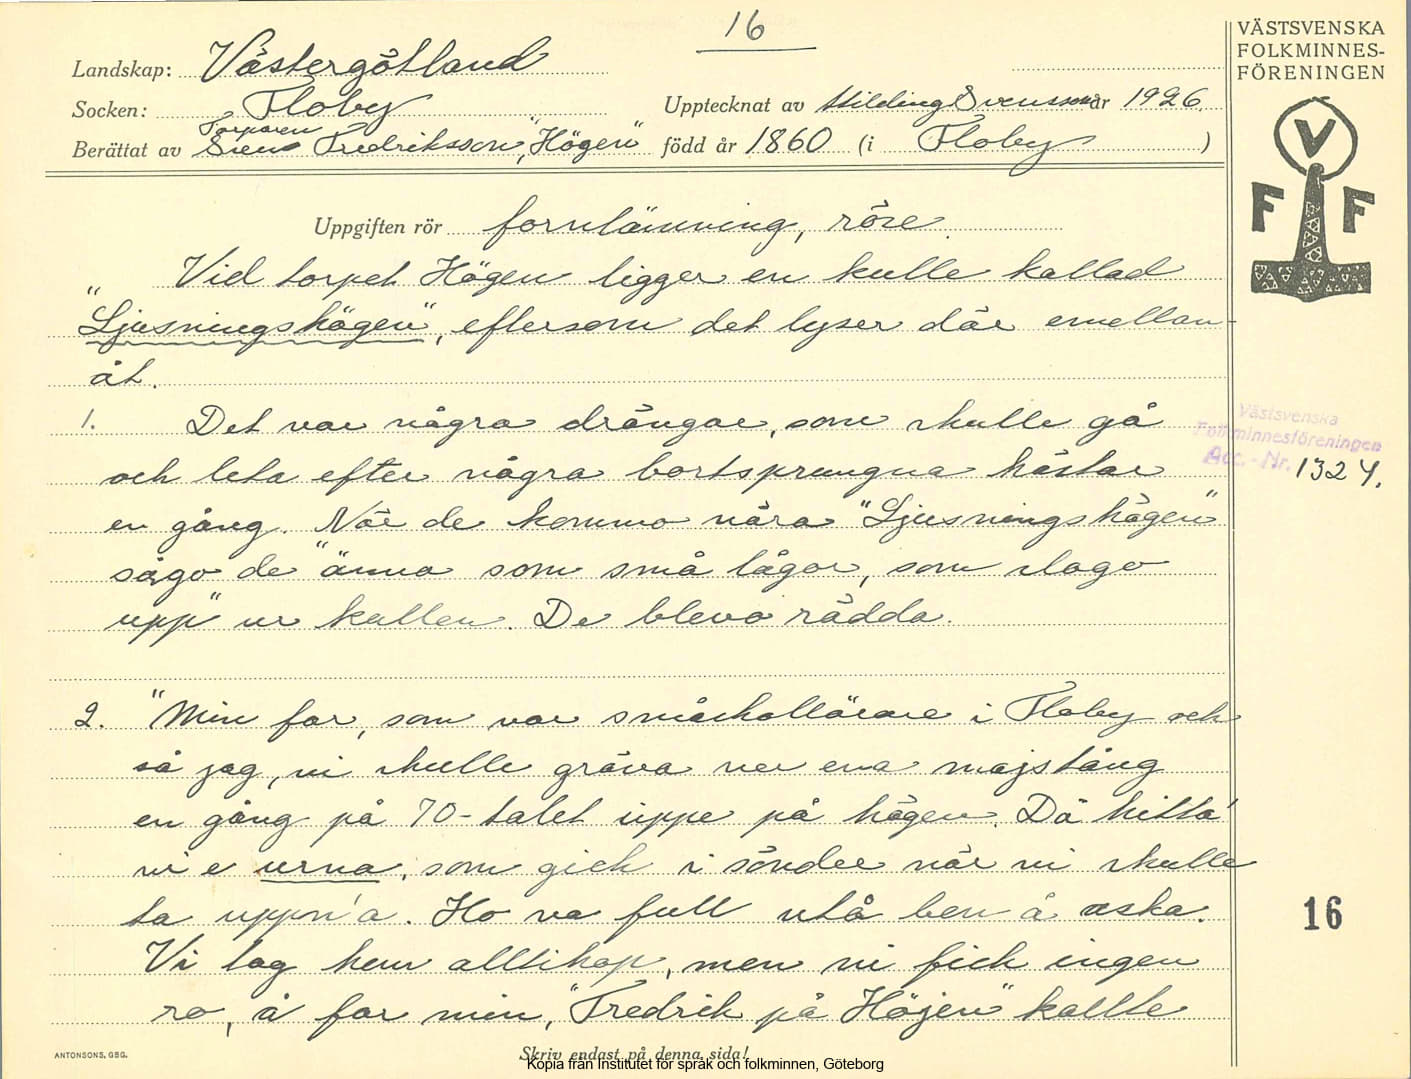 16
VÄSTSVENSKA
FOLKMINNES-
FÖRENINGEN
V
F F
Landskap: Västergötland
Socken: Floby
Upptecknat av Hilding Svensson år 1926.
Torparen
Berättat av Sven Fredriksson, "Högen" född år 1860 (i Floby )
Uppgiften rör fornlämning, röse.
Vid torpet Högen ligger en kulle kallad
"Ljusningshögen", eftersom det lyser där emellan-
åt.
1. Det var några drängar, som skulle gå
och leta efter några bortsprungna hästar
en gång. När de kommo nära "Ljusningshögen"
sågo de "änna som små lågor, som slogo
upp" ur kullen. De blevo rädda.
2. "Min far, som var småskollärare i Floby och
så jag, vi skulle gräva ner ena majstång
en gång på 70-talet uppe på högen. Dä hitta'
vi e urna, som gick i sönder när vi skulle
ta uppn'a. Ho va full utå ben å aska.
Vi tog hem alltihop, men vi fick ingen
ro, å far min, "Fredrik på Höjen" kallte
Västsvenska
Folkminnesföreningen
Acc.-Nr. 1324.
16
ANTONSONS, GBG.
Skriv endast på denna sida!
Kopia från Institutet för språk och folkminnen, Göteborg